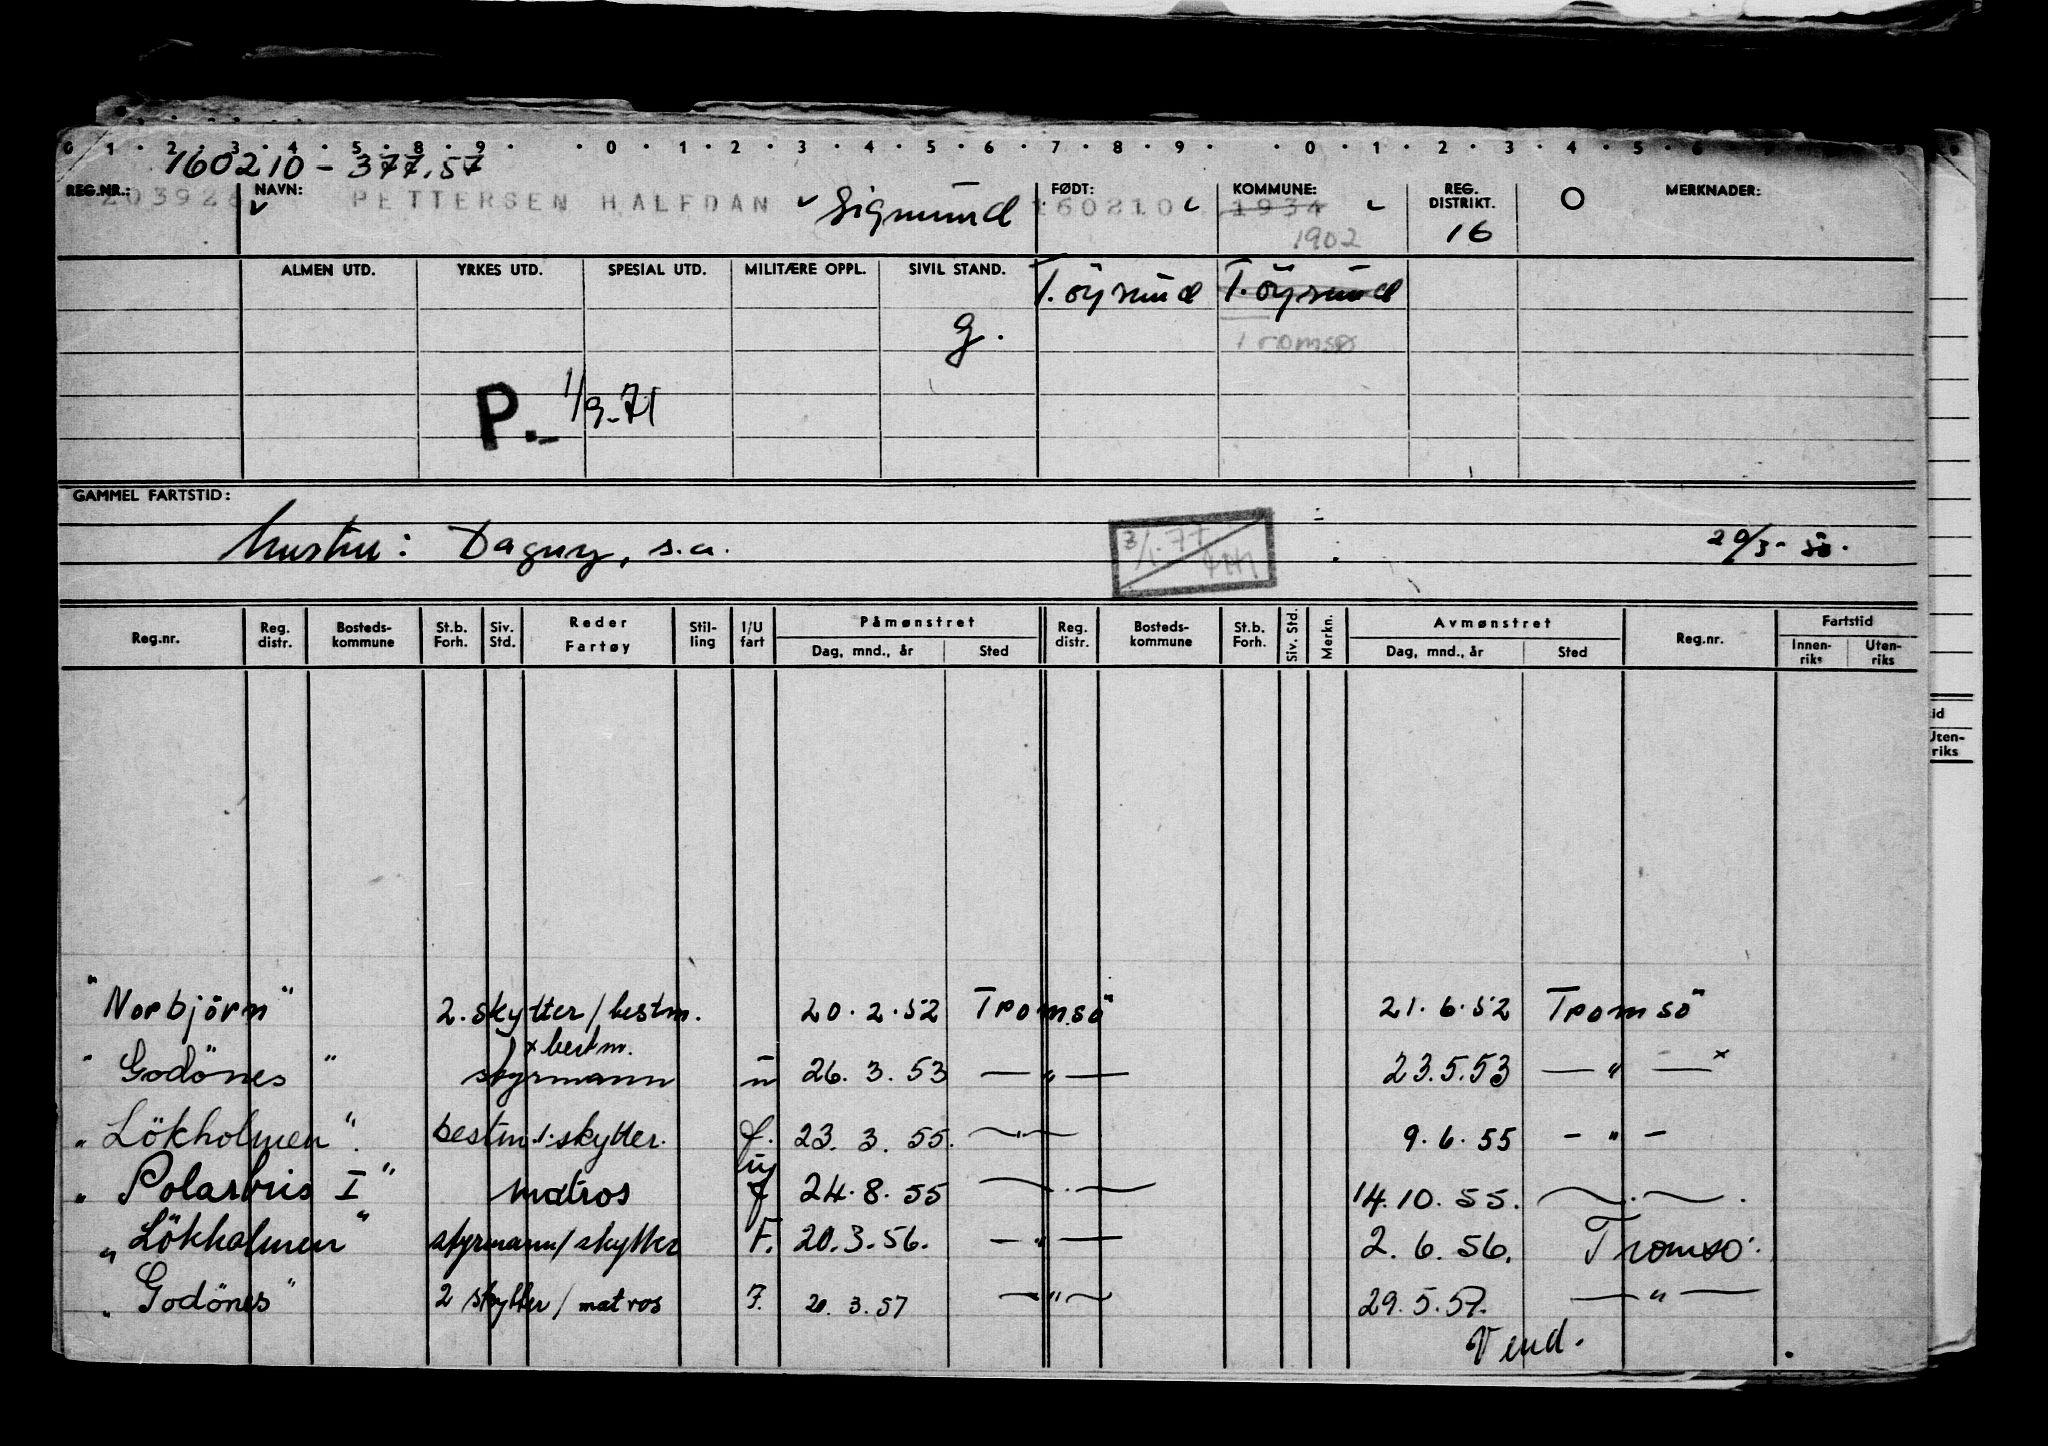 0 1 2 3 4 5 6 7 8 9 0 1 2 3 4 5 6 7 8 9 0 1 2 3 4 5 6 7
160210 - 377.57
REG.NR.: NAVN: FØDT: KOMMUNE: REG. DISTRIKT. O MERKNADER:
PETTERSEN HALFDAN Sigmund 160210 1934 16
1902
ALMEN UTD. YRKES UTD. SPESIAL UTD. MILITÆRE OPPL. SIVIL STAND. T. öysund T. öysund
g. Tromsø
P. 1/9-71
GAMMEL FARTSTID:
hustru: Dagny, s.a. 3/1.77 20/3-
Reg.nr. Reg. distr. Bosteds-kommune St.b. Forh. Siv. Std. Reder Fartøy Stil-ling I/U fart Påmønstret Dag, mnd., år Sted Reg. distr. Bosteds-kommune St.b. Forh. Siv. Std. Merkn. Avmønstret Dag, mnd., år Sted Reg.nr. Fartstid Innen-riks Uten-riks
id
Uten-
riks
"Norbjörn" 2. skytter/bestm. 20.2.52 Tromsö 21.6.52 Tromsö
x bestm.
"Godönes" styrmann u 26.3.53 — " — 23.5.53 — " — x
"Lökholmen" bestm./skytter. f. 23.3.55. — " — 9.6.55 - " -
"Polarbris I" matros 24.8.55 — . — 14.10.55. — . — .
"Lökholmen" styrmann/skytter F. 20.3.56. — " — 2.6.56. Tromsö.
"Godönes" 2 skytter/matros F. 20.3.57 — " — 29.5.57. — " —
Vend.